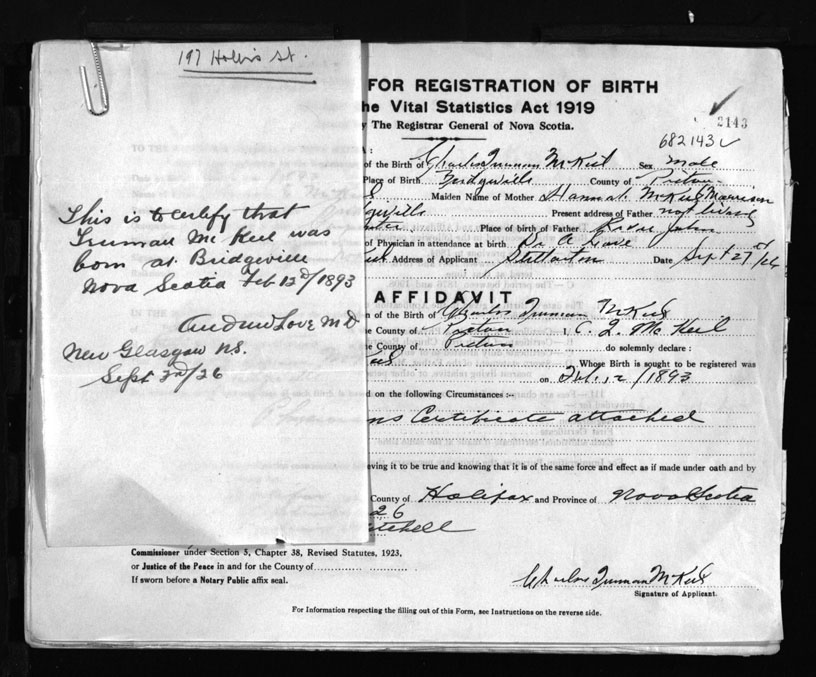 197 Hollis St.
This is to certify that
Truman McKeil was
born at Bridgeville
Nova Scotia Feb 12th/1893
Andrew Love M D
New Glasgow N.S.
Sept 2nd/26
FOR REGISTRATION OF BIRTH
he Vital Statistics Act 1919
y The Registrar General of Nova Scotia.
2143
682143
of the Birth of Charles Truman McKeil Sex Male
Place of Birth Bridgeville County of Pictou
Maiden Name of Mother Hannah McKeil Morrison
Present address of Father not living
Place of birth of Father John
of Physician in attendance at birth Dr A Love
Address of Applicant Stellarton Date Sept 27
AFFIDAVIT
n of the Birth of Charles Truman McKeil
e County of Pictou I, C. T. McKeil
e County of Pictou do solemnly declare :
Whose Birth is sought to be registered was
on Feb. 12/1893
d on the following Circumstances :-
ns Certificate attached
eving it to be true and knowing that it is of the same force and effect as if made under oath and by
County of Halifax and Province of Nova Scotia
26
tchell
Commissioner under Section 5, Chapter 38, Revised Statutes, 1923,
or Justice of the Peace in and for the County of
If sworn before a Notary Public affix seal.
Charles Truman McKeil
Signature of Applicant.
For Information respecting the filling out of this Form, see Instructions on the reverse side.